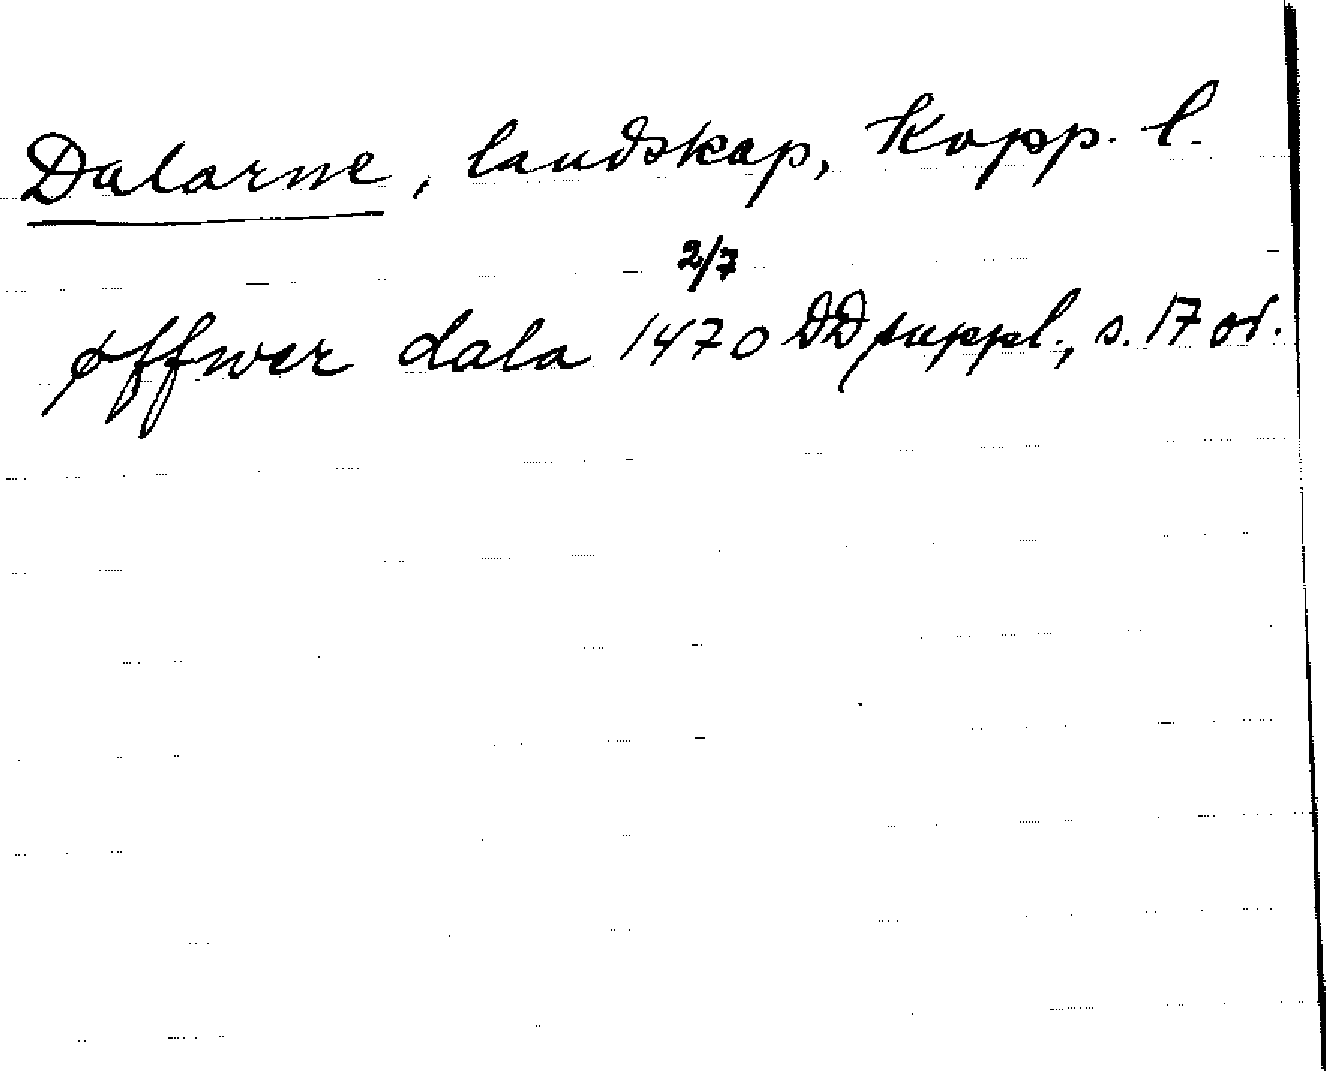 Dalarne, landskap, Kopp. l.
2/7
øffwer dala 1470 DD suppl., s. 17 or.